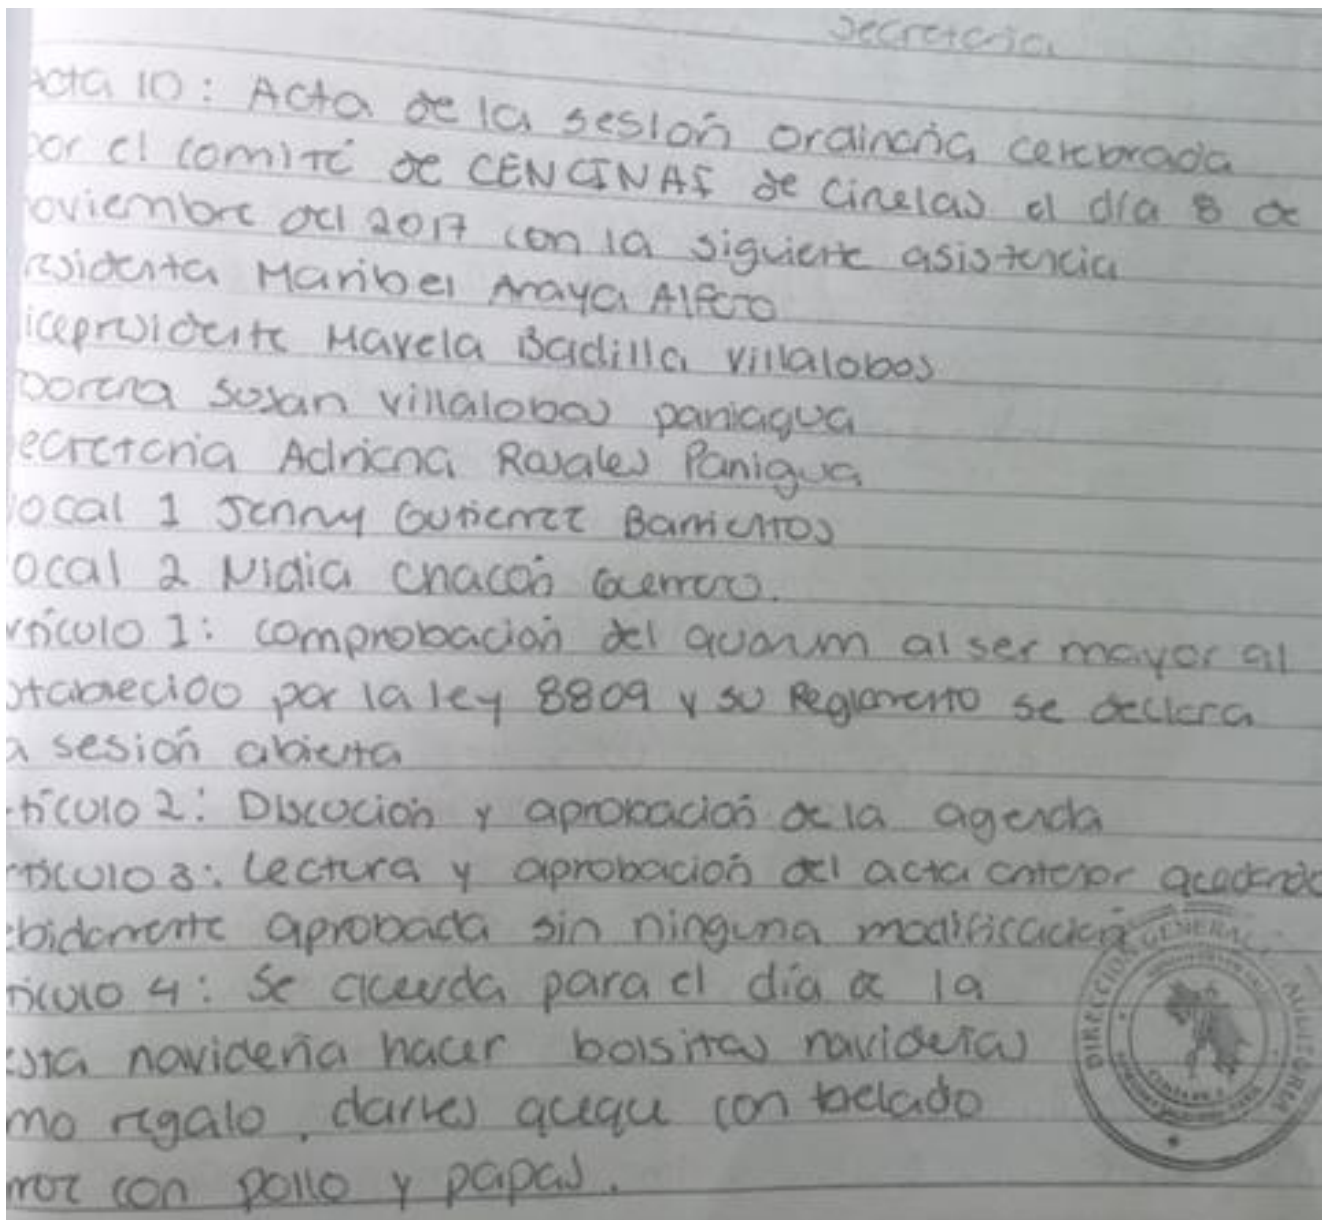 Secretaria
Acta 10: Acta de la sesión ordinaria cerebrada
por el comité de CENCINAI de Cirelas el día 8 de
noviembre del 2017 con la siguiente asistencia
residenta Maribel Araya Alfaro
icepresidente Mayela Badilla Villalobos
Susan Villalobos paniagua
ecretaria Adriana Rosales Panigua
ocal 1 Jenny Gutierrez Barrientos
ocal 2 Nidia Chacón Guerrero.
rtículo 1: comprobación del quorum al ser mayor al
stablecido por la ley 8809 y su Reglamento se declara
a sesión abierta
tículo 2: Discución y aprobación de la agenda
rtículo 3: Lectura y aprobación del acta anterior quedando
ebidamente aprobada sin ninguna modificación
tículo 4: Se acuerda para el día de la
esta navideña hacer bolsitas navideñas
mo regalo, darles queque con helado
rroz con pollo y papas.
DIRECCIÓN GENERAL AUDITORIA